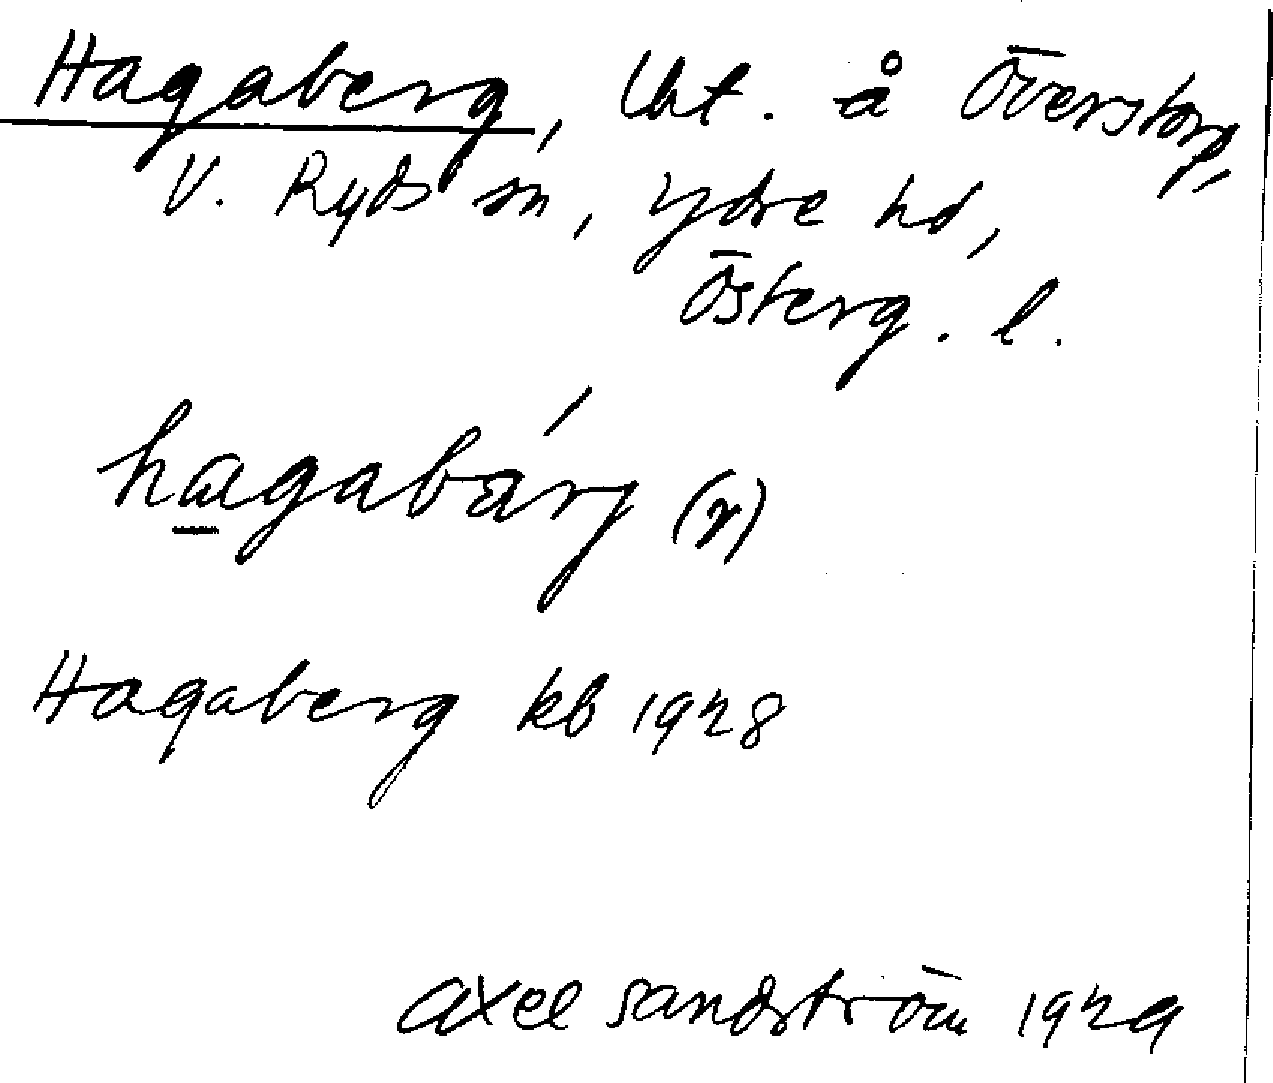 Hagaberg, lht. å Överstorp,
V. Ryds sn, Ydre hd,
Österg. l.
hagabárj (r)
Hagaberg kb 1928
Axel Sandström 1929